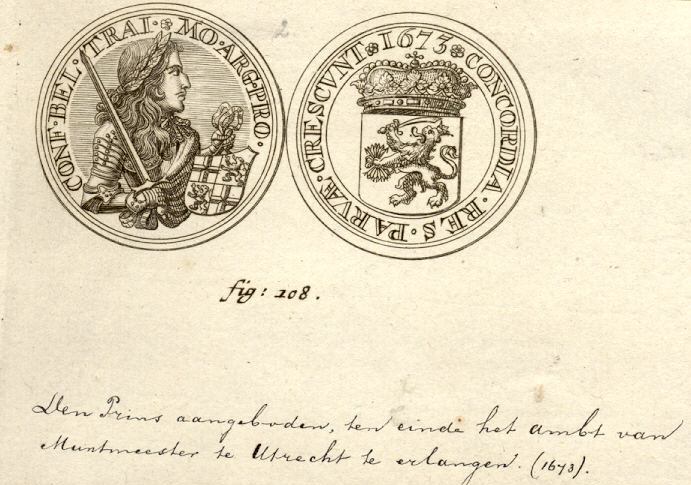 MO·ARG·PRO·CONF·BEL·TRAI·
CONCORDIA·RES·PARVÆ·CRESCVNT 1673
2
fig: 108.
Den Prins aangeboden, ten einde het ambt van
Muntmeester te Utrecht te erlangen. (1673).